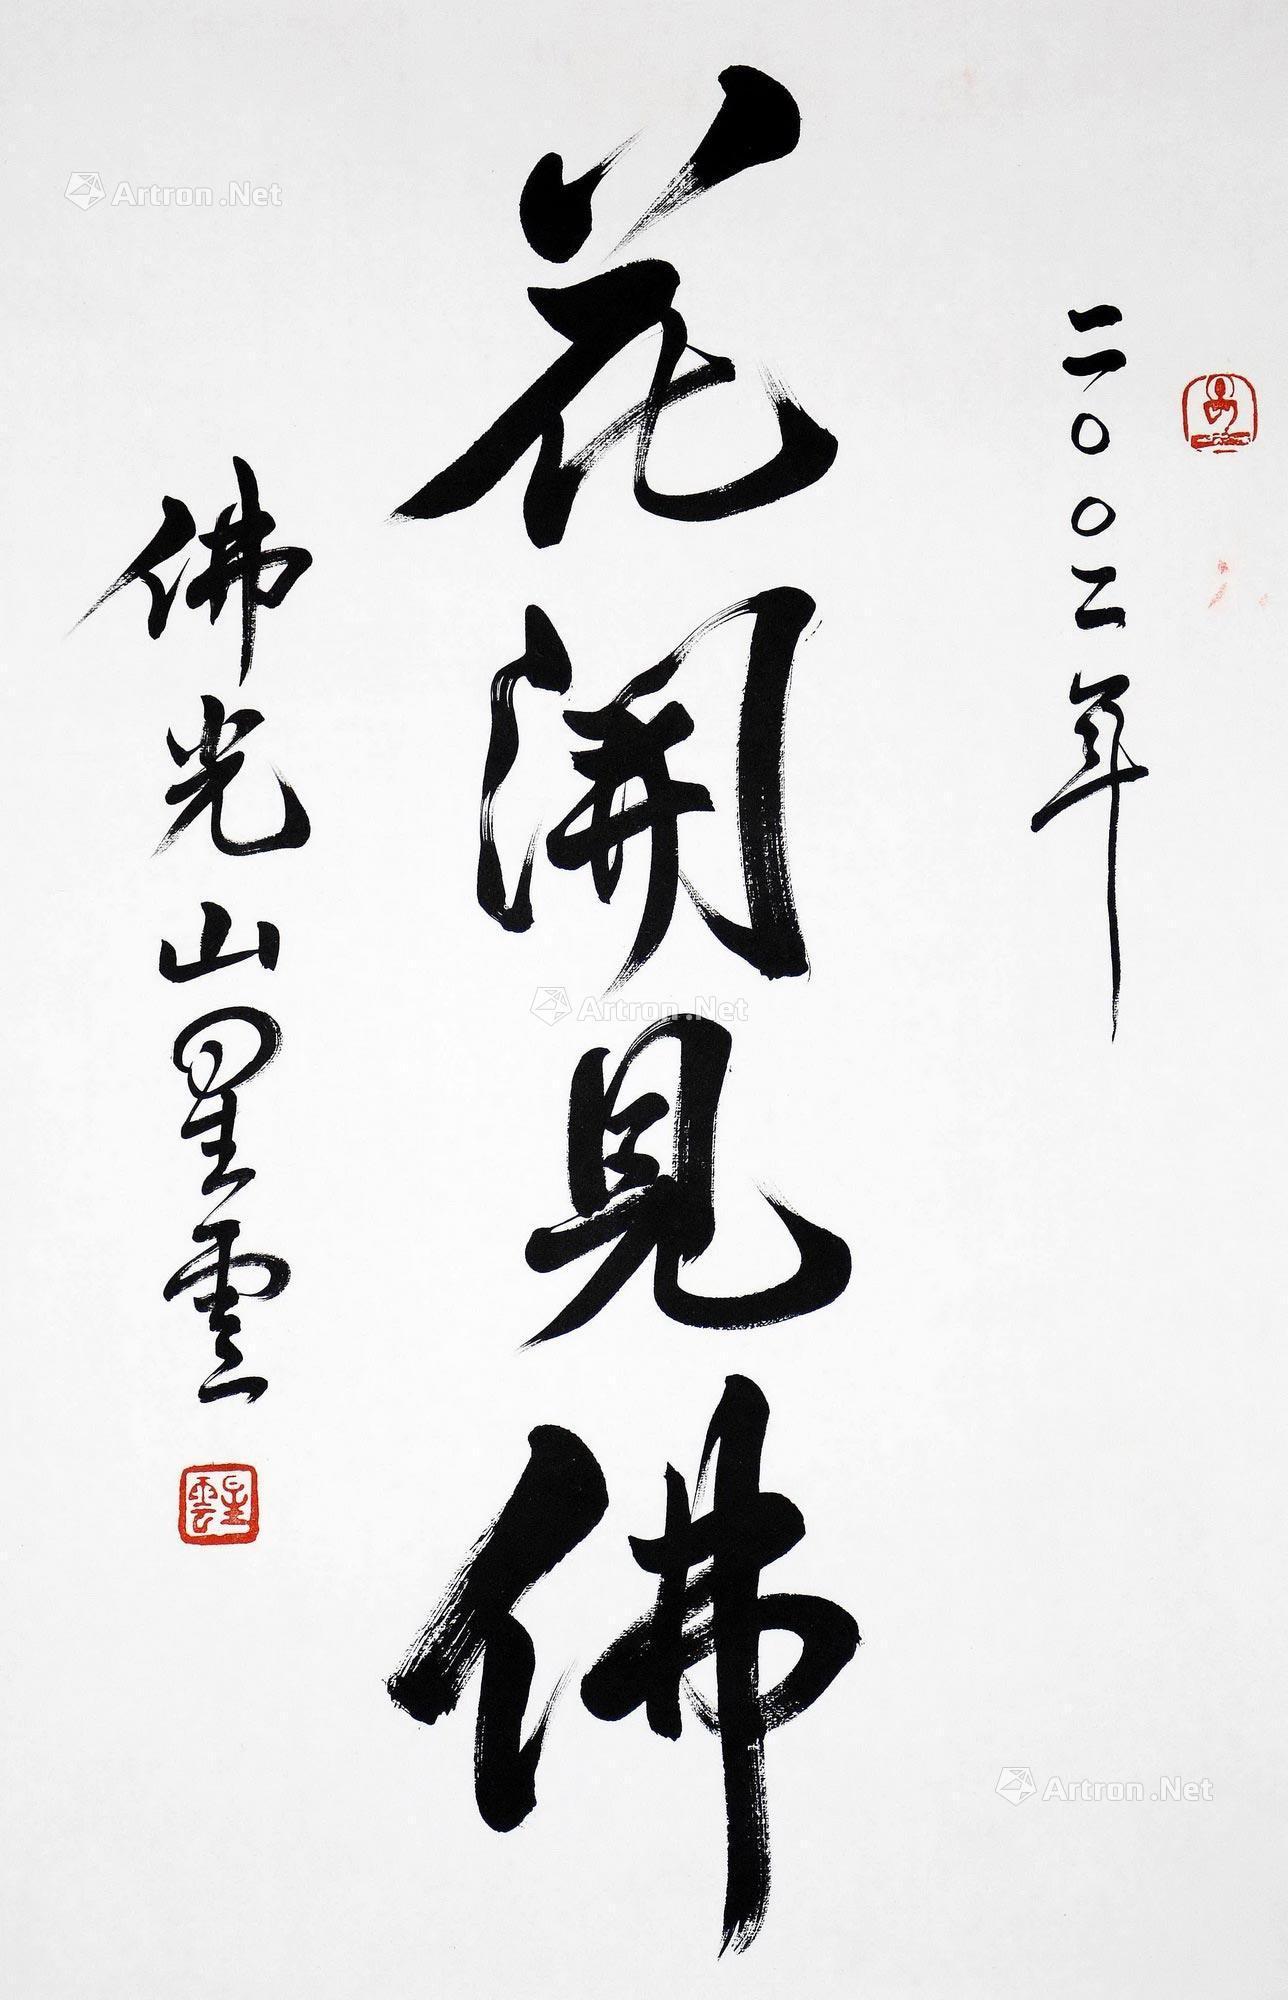 二〇〇二年
花開見佛
佛光山星雲
星雲
Artron.Net
Artron.Net
Artron.Net